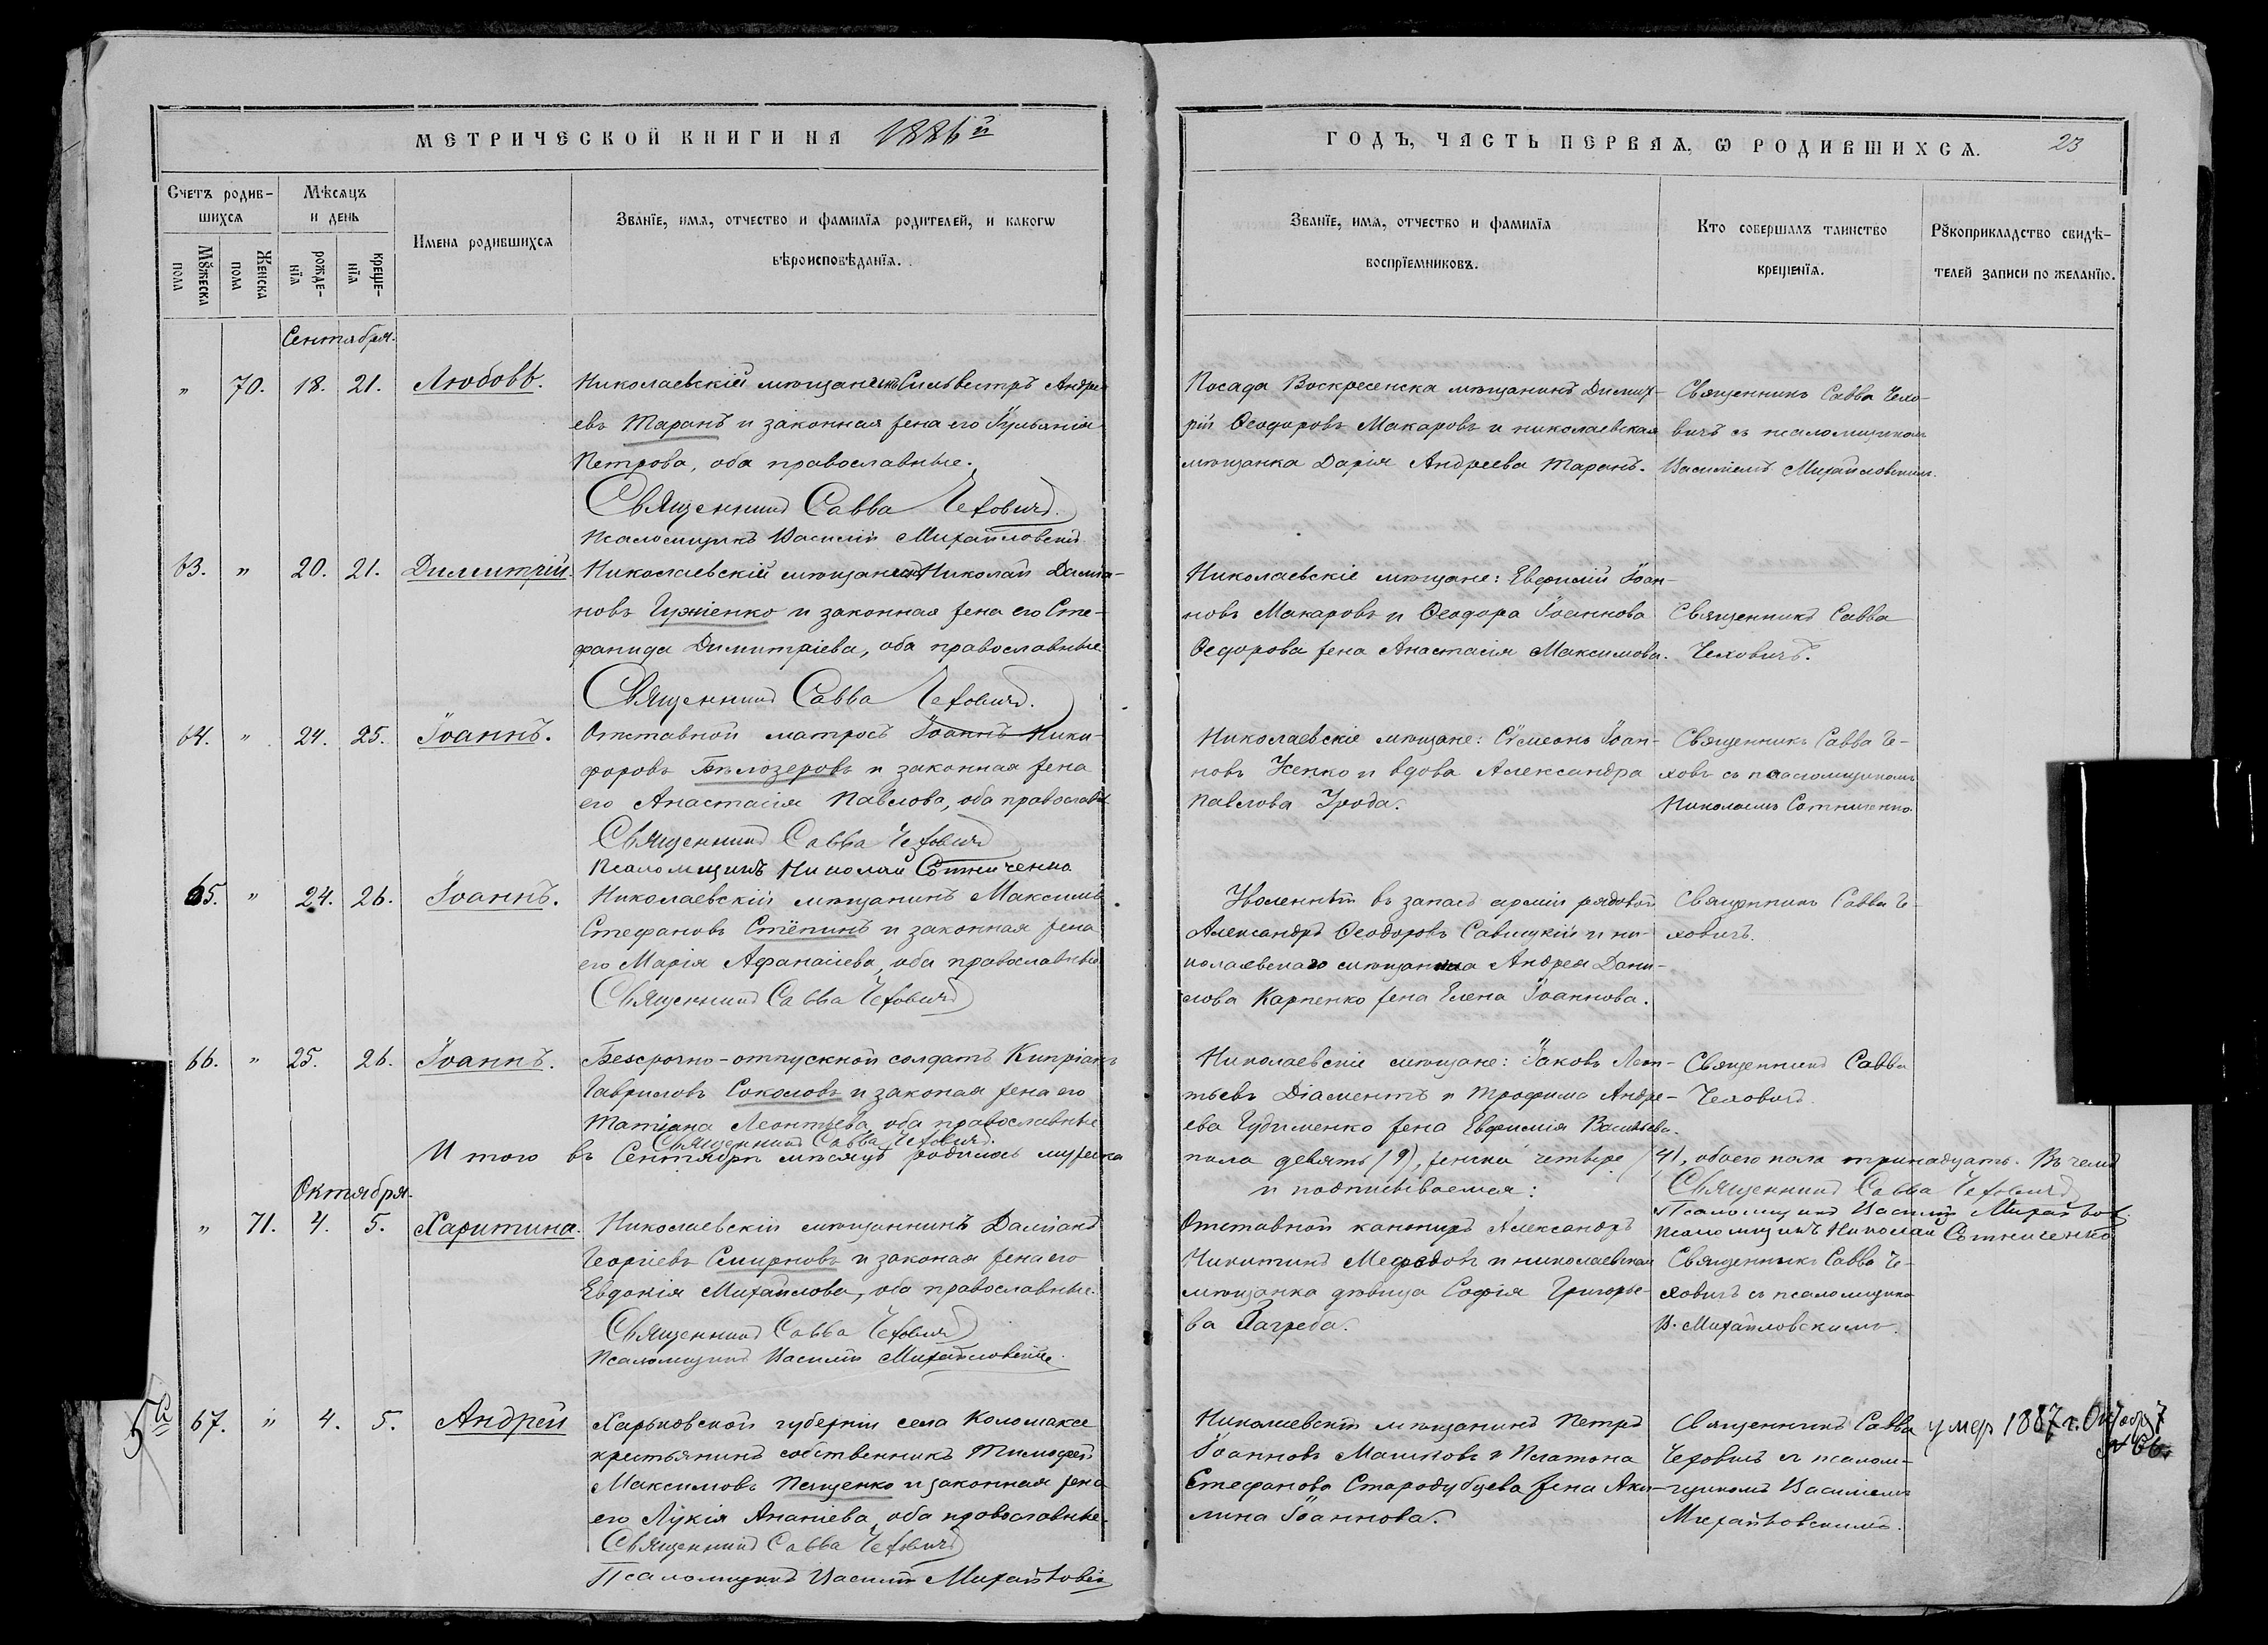 МЕТРИЧЕСКОЙ КНИГИ НА 1886й
ГОДЪ, ЧАСТЬ ПЕРВАЯ, Ѡ РОДИВШИХСѦ. 23
Счетъ родив-
шихсѧ
Мѣсѧцъ
и день
Имена родившихсѧ
Званїе, имѧ, отчество и фамилїѧ родителей, и какогѡ
вѣроисповѣданїѧ.
Мꙋжеска
пола
Женска
пола
рожде-
нїѧ
креще-
нїѧ
Званїе, имѧ, отчество и фамилїѧ
воспрїемниковъ.
Кто совершалъ таинство
крещенїѧ.
Рꙋкоприкладство свидѣ-
телей записи по желанїю.
Сентября.
" 70. 18. 21. Любовь. Николаевскій мѣщанинъ Сильвестръ Андре
евъ Таранъ и законная жена его Іульянія
Петрова, оба православные.
Священникъ Савва Чехович.
Псаломщикъ Василій Михайловскій
Посада Воскресенска мѣщанинъ Димит-
рій Ѳеодоровъ Макаровъ и николаевская
мѣщанка Дарія Андреева Таранъ.
Священникъ Савва Чехо-
вичъ съ псаломщикомъ
Василіемъ Михайловскимъ.
63. " 20. 21. Димитрій. Николаевскій мѣщанинъ Николай Даміа-
новъ Гужіенко и законная жена его Сте-
фанида Димитріева, оба православные.
Священникъ Савва Чехович.
Николаевскіе мѣщане: Евфимій Іоан-
новъ Макаровъ и Ѳеодора Іоаннова
Ѳедорова жена Анастасія Максимова.
Священникъ Савва
Чеховичъ.
64. " 24. 25. Іоаннъ. Отставной матросъ Іоаннъ Ники-
форовъ Бѣлозеровъ и законная жена
его Анастасія Павлова, оба православн
Священникъ Савва Чехович
Псаломщикъ Николай Сотниченко
Николаевскіе мѣщане: Сѵмеонъ Іоан-
новъ Усенко и вдова Александра
Павлова Урода.
Священникъ Савва Че-
ховъ съ псаломщикомъ
Николаемъ Сотниченко
65. " 24. 26. Іоаннъ. Николаевскій мѣщанинъ Максимъ
Стефановъ Стёпинъ и законная жена
его Марія Афанасіева, оба православные
Священникъ Савва Чехович
Уволенный въ запасъ арміи рядовой
Александръ Ѳеодоровъ Савицкій и ни-
колаевскаго мѣщанина Андрея Дани-
лова Карпенко жена Елена Іоаннова.
Священникъ Савва Че-
ховичъ.
66. " 25. 26. Іоаннъ. Безсрочно-отпускной солдатъ Кипріанъ
Гавриловъ Соколовъ и законая жена его
Татіана Леонтьева, оба православные
Священникъ Савва Чехович.
Николаевскіе мѣщане: Іаковъ Леон-
тьевъ Діаментъ и Трофима Андре-
ева Гудименко жена Евфимія Васильева.
Священникъ Савва
Чехович.
И того въ Сентябрѣ мѣсяцѣ родилось мужеска
пола девять (9), женска четыре (4), обоего пола тринадцать. Въ чемъ
и подписываемся: Священникъ Савва Чехович
Псаломщикъ Василій Михайлов
Псаломщикъ Николай Сотниченко
Октября.
" 71. 4. 5. Харитина. Николаевскій мѣщанинъ Даміанъ
Георгіевъ Смирновъ и законая жена его
Евдокія Михайлова, оба православные.
Священникъ Савва Чехович
Псаломщикъ Василій Михайловскій.
Отставной канониръ Александръ
Никитинъ Мефодовъ и николаевская
мѣщанка дѣвица Софія Григорье-
ва Загреба.
Священникъ Савва Че-
ховичъ съ псаломщико
В. Михайловскимъ.
67. " 4. 5. Андрей Харьковской губерніи села Коломакъ
крестьянинъ собственникъ Тимофей
Максимовъ Пащенко и законная жена
его Лукія Ананіева, оба православные.
Священникъ Савва Чехович
Псаломщикъ Василій Михайловскі
Николаевскій мѣщанинъ Петръ
Іоанновъ Машковъ и Платона
Стефанова Стародубцева жена Аки-
лина Іоаннова.
Священникъ Савва
Чехович съ псалом-
щикомъ Василіемъ
Михайловскимъ.
умер 1887 г. Октобр 7
№ 66.